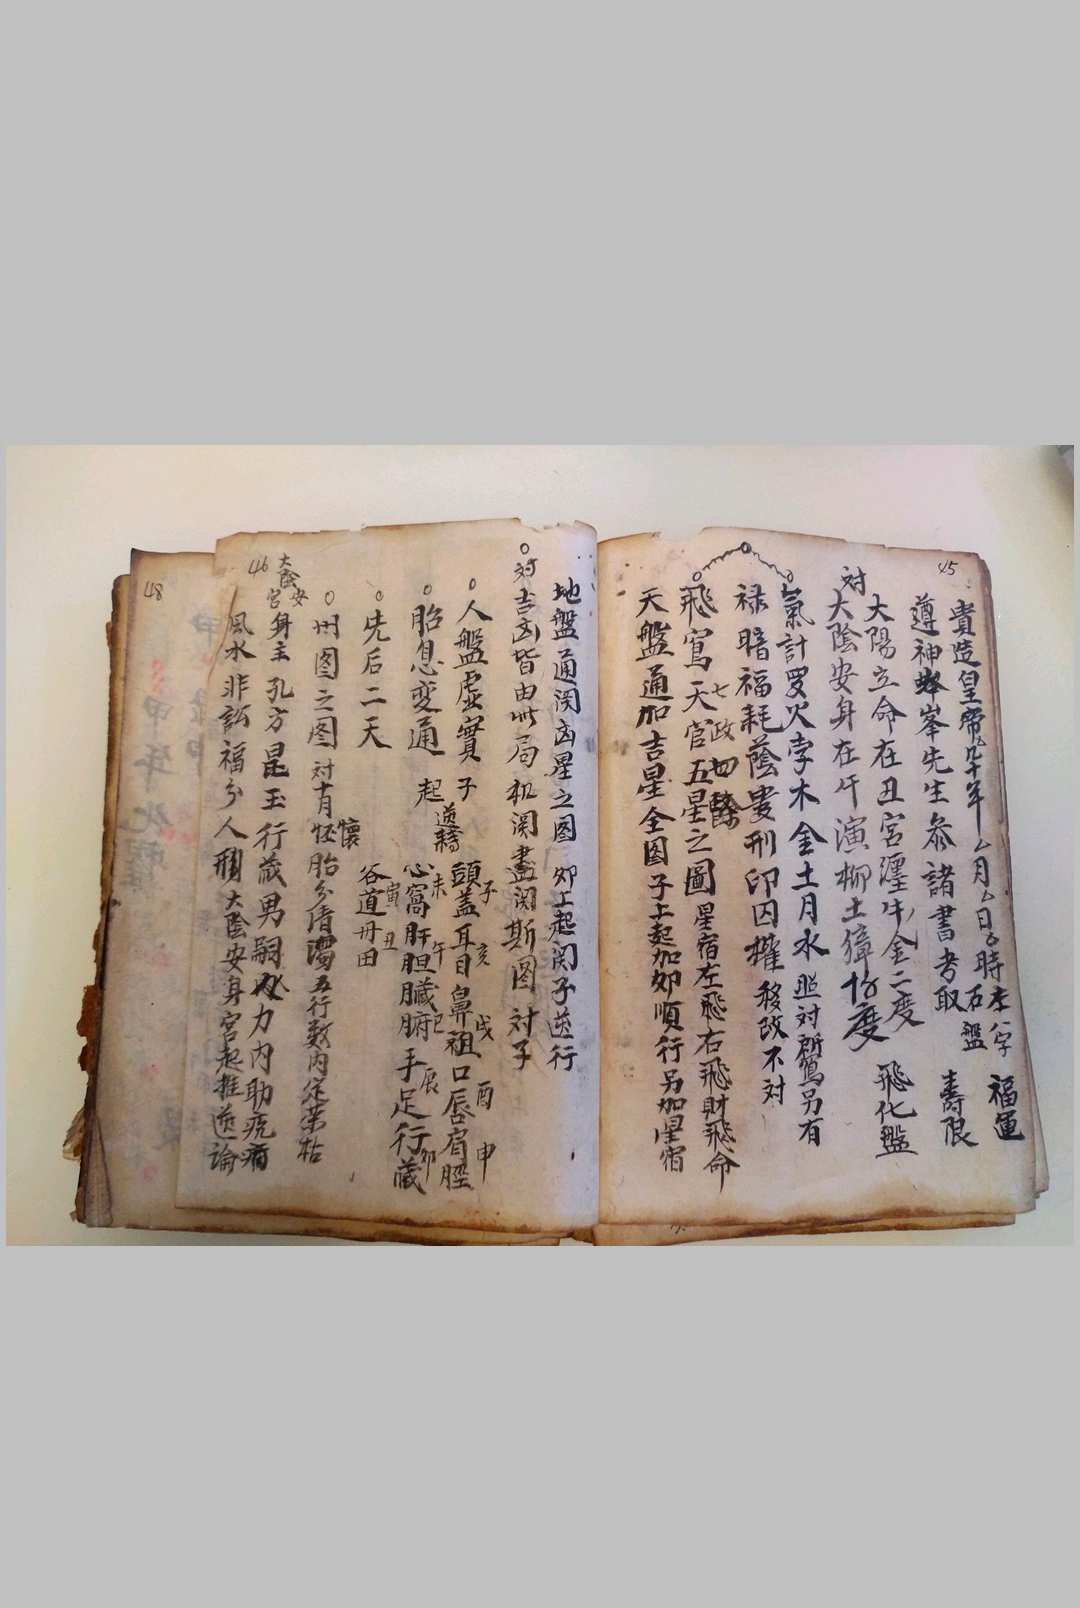 45
貴造皇帝 九十年 月 日 時 左八字 福運
遵神峯先生叅諸書考取 右盤 壽限
太陽立命在丑宮躔牛金二度 飛化盤
対
大陰安身在午演柳土獐 度
氣計罗火孛木金土月水 照対 另有
禄暗福耗蔭貴刑印囚權 移改不対
七政四餘
飛寫天官五星之圖 星宿左飛右飛財飛命
天盤通加吉星全图子上起加卯順行另加星宿
地盤通関凶星之图 卯上起関子逆行
対
吉凶皆由此局机関盡関斯图 対子
人盤虚實 子 頭蓋耳目鼻祖口唇肩脛
子 亥 戌 酉 申
逆轉
胎息变通 起 心窩肝胆臟腑手足行藏
未 午 巳 辰 卯
先后二天 谷道丹田
寅 丑
州图之图 対十月怀胎分清濁五行数内定荣枯
懷
46
大陰安宮
身主孔方昆玉行歳男嗣 力内助疣痏
風水非訟福分人 大陰安身宮起推逆論
48